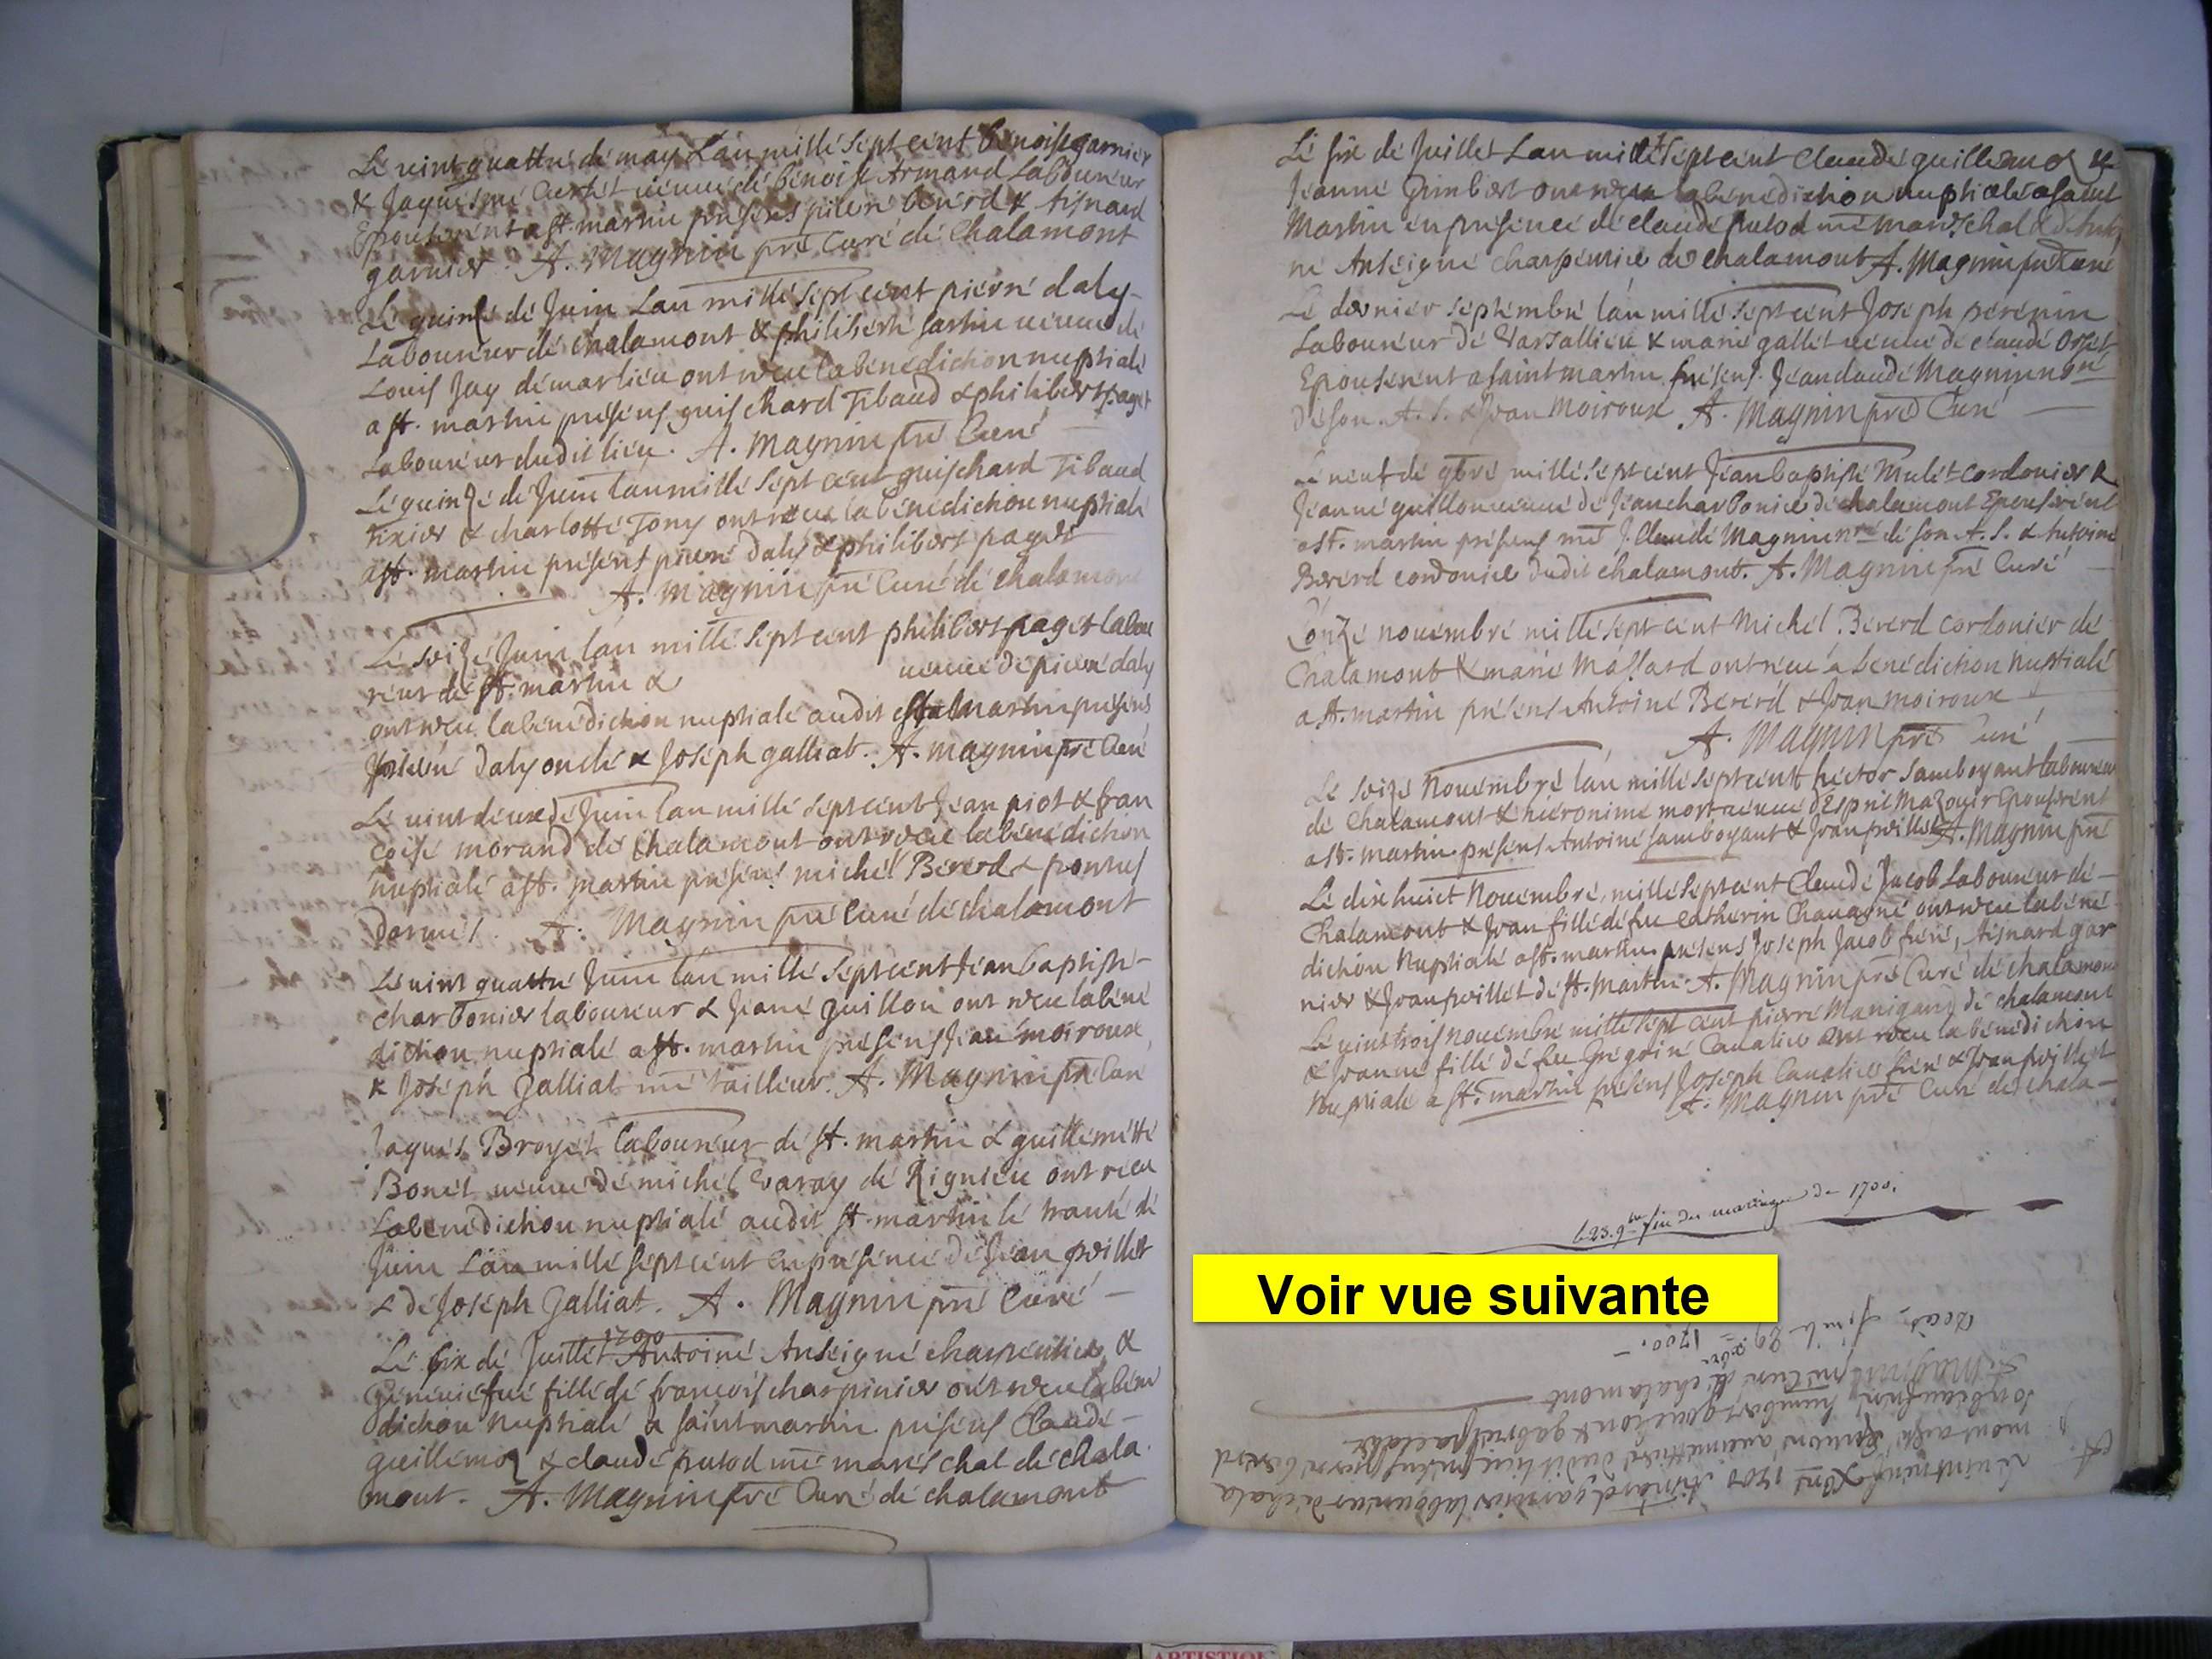 Le vint quattre de may Lan mille sept cent benoist garnier
& Jaquesme veuve de benoist Armand Laboureur
Epouserent a st. martin presens pierre berérd & tisnard
garnier. A. Magnin pre Curé de Chalamont
Le quinze de Juin Lan mille sept cent pierre daly
Laboureur de chalamont & philiberte sartin veuve de
Louis Jay demarlieu ont receu la benediction nuptiale
a st. martin presens guischard Tibaud & philibert paget
Laboureur dudit lieu. A. Magnin pre Curé
Le quinze de Juin lan mille sept cent guischard Tibaud
tixier & charlotte Tony ont receu la benediction nuptiale
a st. martin presens pierre daly & philibert paget
A. Magnin pre Curé de chalamont
Le seize Juin lan mille sept cent philibert paget labou
reur de st. martin & veuve de pierre daly
ont receu la benediction nuptiale audit st martin presens
pierre daly oncle & Joseph galliat. A. Magnin pre Curé
Le vint deux de Juin lan mille sept cent Jean piot & fran
coise morand de chalamont ont receu la benediction
nuptiale a st. martin presens michel Bererd & pontus
A. Magnin pre Curé de chalamont
Le vint quattre Juin lan mille sept cent Jean baptiste
charbonier laboureur & Jeane guillon ont receu la bene
diction nuptiale a st. martin presens Jean moiroux
& Joseph galliat me tailleur. A. Magnin pre Cure
Jaques Broyet laboureur de st. martin & guillemette
Bonet veuve de michel varay de Rignieu ont receu
La benediction nuptiale audit st. martin le trante de
Juin Lan mille sept cent en presence de Jean poillet
& de Joseph Galliat. A. Magnin pre Curé
1700
Le six de Juillet Antoine Anseigne charpentier &
geneviefve fille de francois charpinier ont receu la bene
diction nuptiale a saint martin presens Claude
guillemoz & claude putod me mareschal de chala
mont. A. Magnin pre Curé de chalamont
Le six de Juillet Lan mille sept cent Claude guillemoz &
Jeanne Jimbert ont receu la benediction nuptiale a saint
Martin en presence de claude putod me mareschal & d Antoi
ne Anseigne charpentier de chalamont A. Magnin pre Curé
Le dernier septembre lan mille sept cent Joseph perenin
Laboureur de Varsallieu & marie gallet veuve de claude
Epouserent a saint martin presens Jean claude Magnin
de son A. S. & Jean Moiroux A. Magnin pre Curé
Le neuf de 9bre mille sept cent Jean baptiste Mulet cordonier &
Jeanne guillon veuve de Jean charbonier de chalamont Epouserent
a st. martin presens me J. Claude Magnin nre de son A. S. & Antoine
Bererd cordonier dudit chalamont. A. Magnin pre Curé
L onze novembre mille sept cent Michel Bererd Cordonier de
Chalamont & marie Mallard ont receu la benediction Nuptiale
a st. martin presens Antoine Bererd & Jean moiroux
A. Magnin pre Curé
Le seize Novembre lan mille sept cent hector Samboyant laboureur
de Chalamont & hieronime veuve d Esprit Mazoyer Epouserent
a st. martin presens Antoine Samboyant & Jean poillet A. Magnin pre
Le dixhuict Novembre mille sept cent Claude Jacob Laboureur de
Chalamont & Jean fille de feu Catherin Chavagne ont receu la bene
diction Nuptiale a st. martin presens Joseph Jacob frere, tisnard gar
nier & Jean poillet de st. Martin. A. Magnin pre Curé de chalamont
Le vint trois novembre mille sept cent pierre Manigand de chalamont
& Jeanne fille de feu Gregoire Cavalier ont receu la benediction
Nuptiale a st. martin presens Joseph Cavalier frere & Jean poillet
A. Magnin pre Curé de chala
le 23. 9bre fin des mariages de 1700.
Voir vue suivante
Le vint neuf Xbre 1700 tisnard garnier laboureur de chala
dudit lieu presens pierre bererd
humbert & gabriel
A. Magnin pre Curé de chalamont
1700.